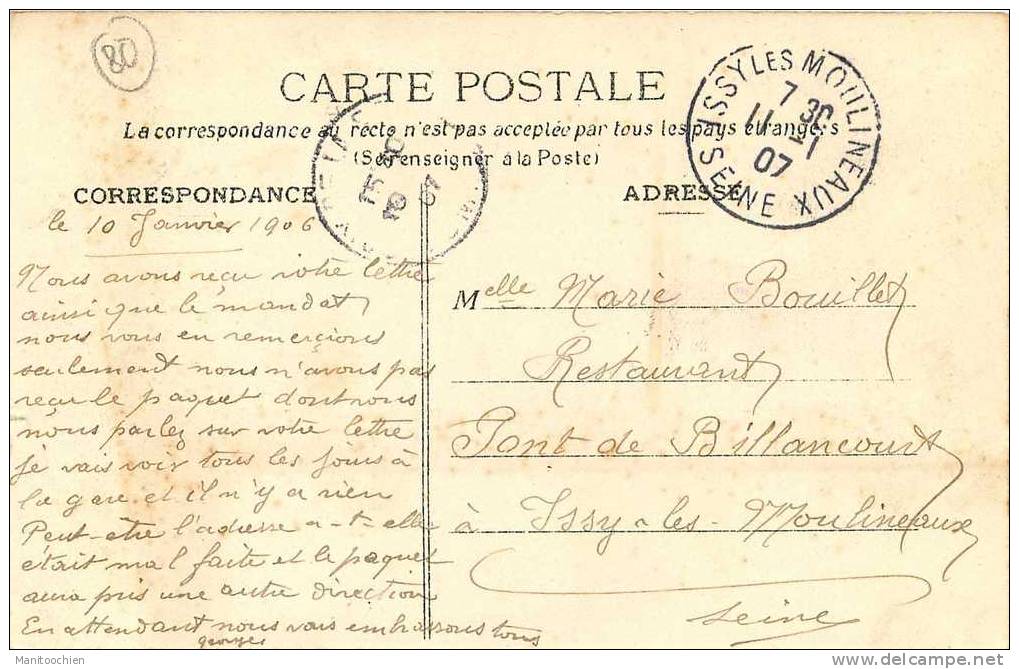 80
CARTE POSTALE
La correspondance au recto n'est pas acceptée par tous les pays étrangers
(Se renseigner à la Poste)
CORRESPONDANCE
ADRESSE
ISSY LES MOULINEAUX
7 30
11 -1
07
SEINE
15
10
07
le 10 Janvier 1906
Nous avons reçu votre lettre
ainsi que le mandat
nous vous en remerçions
seulement nous n'avons pas
reçu le paquet dont vous
nous parlez sur votre lettre
Je vais voir tous les jours à
la gare et il n'y a rien
Peut-etre l'adresse a-t-elle
était mal faite et le paquet
aura pris une autre direction
En attendant nous vous embrassons tous
georges
Melle Marie Bouillet
Restaurant
Pont de Billancourt
à Issy-les-Moulineaux
Seine
Manitoochien
delcampe.net